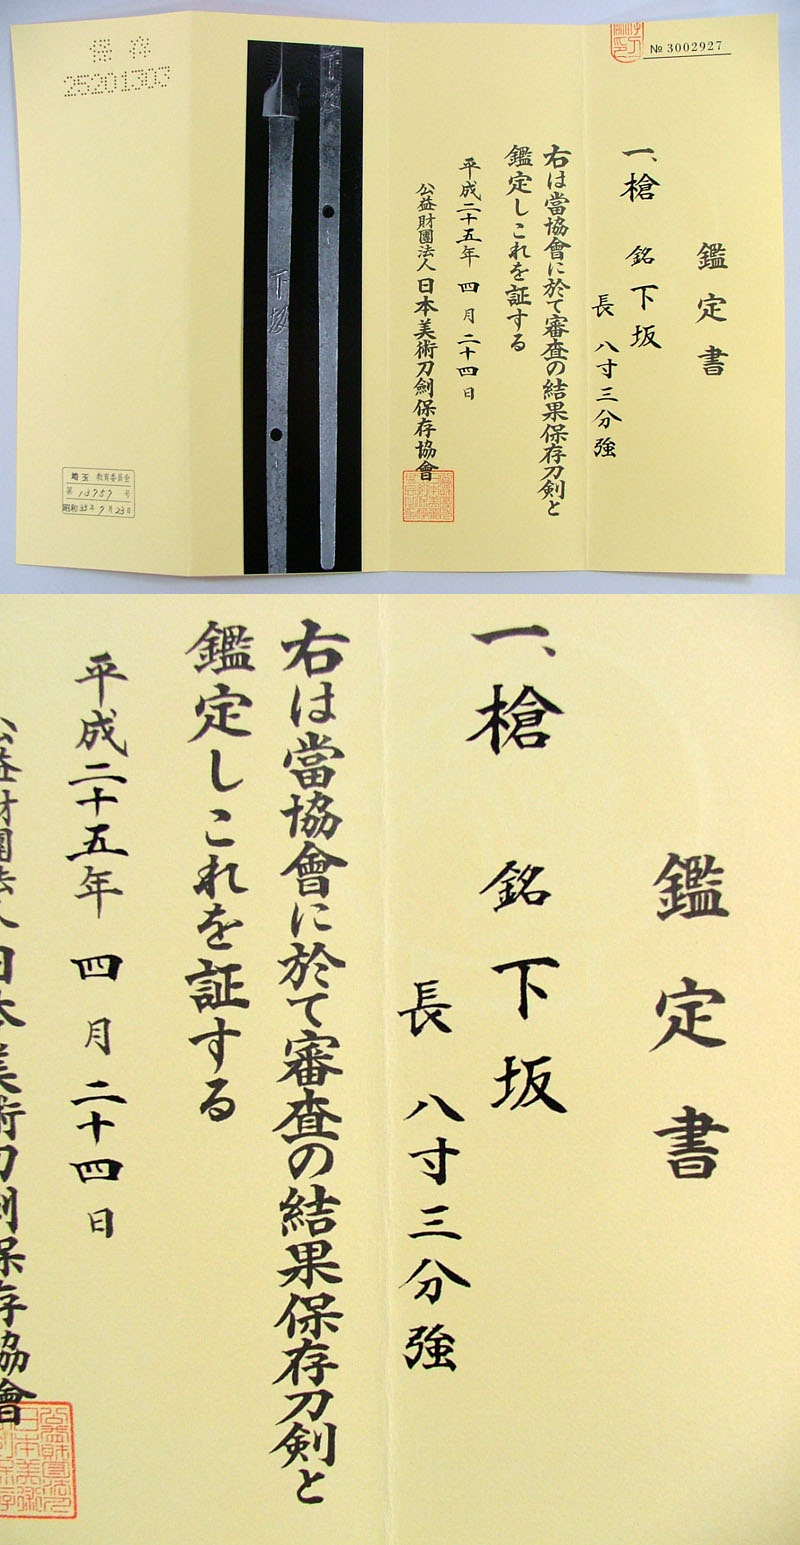 № 3002927
鑑定書
一、槍 銘 下坂
長 八寸三分強
右は當協會に於て審査の結果保存刀剣と
鑑定しこれを証する
平成二十五年 四月二十四日
公益財團法人 日本美術刀劍保存協會
下坂
下坂
保存
25201303
埼玉 教育委員会
第 13757 号
昭和33年9月23日
鑑定書
一、槍 銘 下坂
長 八寸三分強
右は當協會に於て審査の結果保存刀剣と
鑑定しこれを証する
平成二十五年 四月二十四日
公益財團法人 日本美術刀劍保存協會